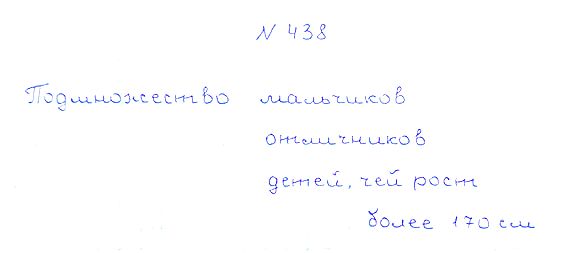 N 438
Подмножество мальчиков
отличников
детей, чей рост
более 170 см